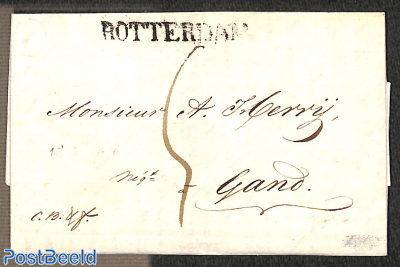 ROTTERDAM
Monsieur A. Herry,
5
Négt
a Gand.
c. B. & f.
PostBeeld